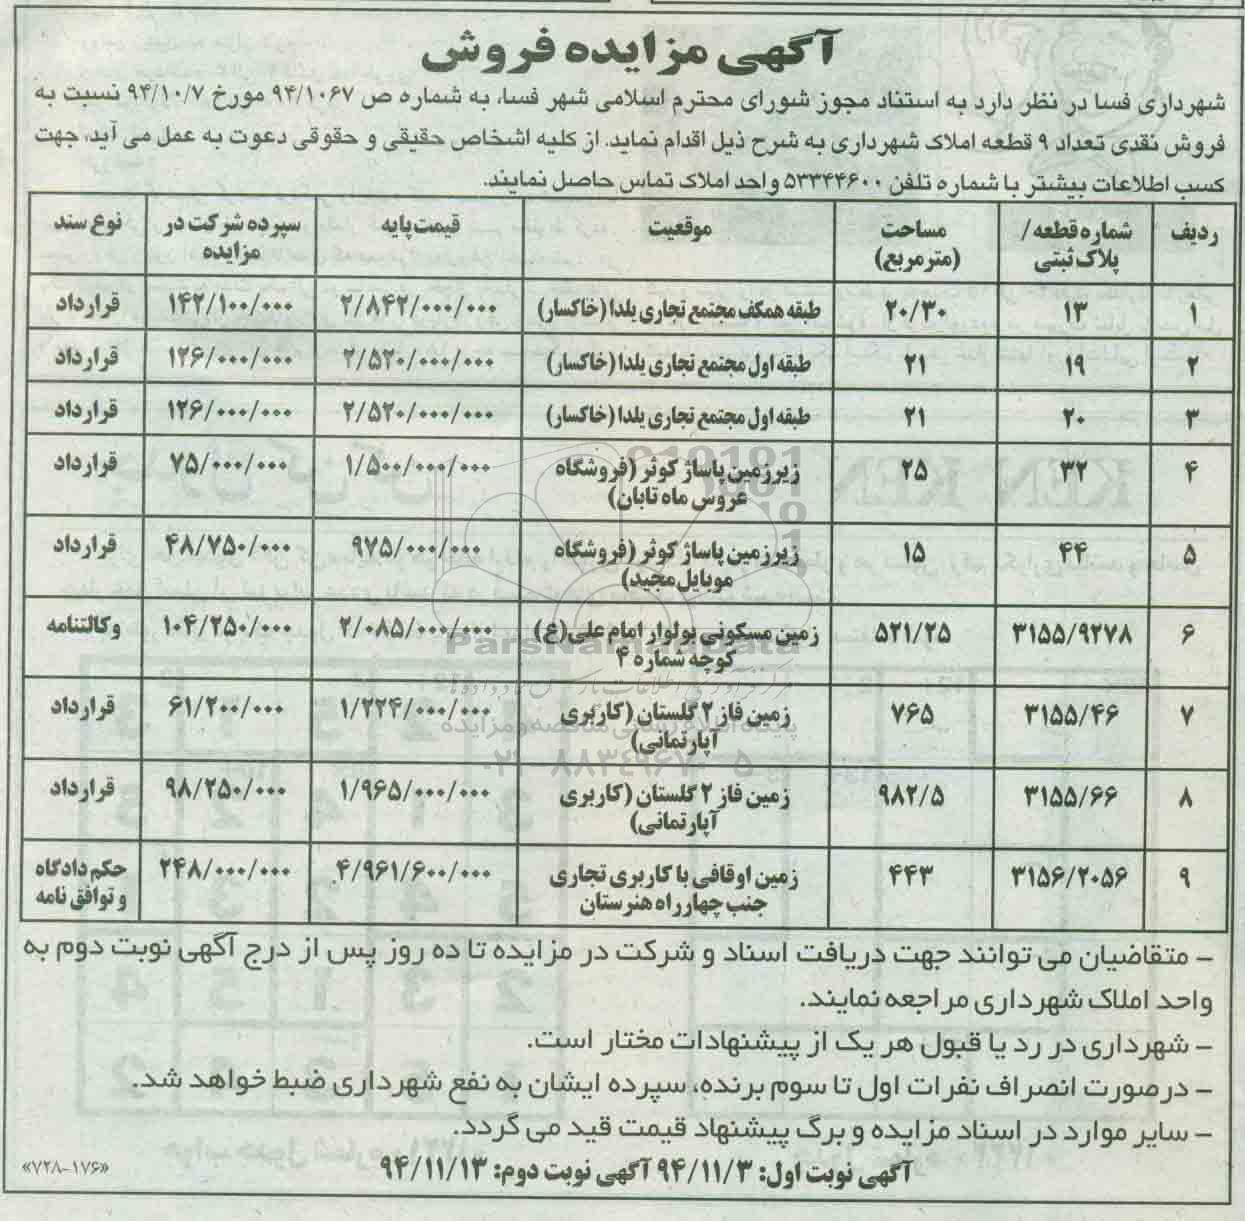 آگهی مزایده فروش
شهرداری فسا در نظر دارد به استناد مجوز شورای محترم اسلامی شهر فسا، به شماره ص ۹۴/۱۰۶۷ مورخ ۹۴/۱۰/۷ نسبت به
فروش نقدی تعداد ۹ قطعه املاک شهرداری به شرح ذیل اقدام نماید. از کلیه اشخاص حقیقی و حقوقی دعوت به عمل می آید، جهت
کسب اطلاعات بیشتر با شماره تلفن ۵۳۳۴۴۶۰۰ واحد املاک تماس حاصل نمایند.
ردیف شماره قطعه/ پلاک ثبتی مساحت (مترمربع) موقعیت قیمت پایه سپرده شرکت در مزایده نوع سند
۱ ۱۳ ۲۰/۳۰ طبقه همکف مجتمع تجاری یلدا (خاکسار) ۲/۸۴۲/۰۰۰/۰۰۰ ۱۴۲/۱۰۰/۰۰۰ قرارداد
۲ ۱۹ ۲۱ طبقه اول مجتمع تجاری یلدا (خاکسار) ۲/۵۲۰/۰۰۰/۰۰۰ ۱۲۶/۰۰۰/۰۰۰ قرارداد
۳ ۲۰ ۲۱ طبقه اول مجتمع تجاری یلدا (خاکسار) ۲/۵۲۰/۰۰۰/۰۰۰ ۱۲۶/۰۰۰/۰۰۰ قرارداد
۴ ۳۲ ۲۵ زیرزمین پاساژ کوثر (فروشگاه عروس ماه تابان) ۱/۵۰۰/۰۰۰/۰۰۰ ۷۵/۰۰۰/۰۰۰ قرارداد
۵ ۴۴ ۱۵ زیرزمین پاساژ کوثر (فروشگاه موبایل مجید) ۹۷۵/۰۰۰/۰۰۰ ۴۸/۷۵۰/۰۰۰ قرارداد
۶ ۳۱۵۵/۹۲۷۸ ۵۲۱/۲۵ زمین مسکونی بولوار امام علی(ع) کوچه شماره ۴ ۲/۰۸۵/۰۰۰/۰۰۰ ۱۰۴/۲۵۰/۰۰۰ وکالتنامه
۷ ۳۱۵۵/۴۶ ۷۶۵ زمین فاز ۲ گلستان (کاربری آپارتمانی) ۱/۲۲۴/۰۰۰/۰۰۰ ۶۱/۲۰۰/۰۰۰ قرارداد
۸ ۳۱۵۵/۶۶ ۹۸۲/۵ زمین فاز ۲ گلستان (کاربری آپارتمانی) ۱/۹۶۵/۰۰۰/۰۰۰ ۹۸/۲۵۰/۰۰۰ قرارداد
۹ ۳۱۵۶/۲۰۵۶ ۴۴۳ زمین اوقافی با کاربری تجاری جنب چهارراه هنرستان ۴/۹۶۱/۶۰۰/۰۰۰ ۲۴۸/۰۰۰/۰۰۰ حکم دادگاه و توافق نامه
ParsNamadData
پایگاه اطلاع رسانی مناقصه و مزایده
۰۲۱-۸۸۳۴۹۶۷۰-۵
– متقاضیان می توانند جهت دریافت اسناد و شرکت در مزایده تا ده روز پس از درج آگهی نوبت دوم به
واحد املاک شهرداری مراجعه نمایند.
– شهرداری در رد یا قبول هر یک از پیشنهادات مختار است.
– درصورت انصراف نفرات اول تا سوم برنده، سپرده ایشان به نفع شهرداری ضبط خواهد شد.
– سایر موارد در اسناد مزایده و برگ پیشنهاد قیمت قید می گردد.
آگهی نوبت اول: ۹۴/۱۱/۳ آگهی نوبت دوم: ۹۴/۱۱/۱۳
«۷۲۸-۱۷۶»